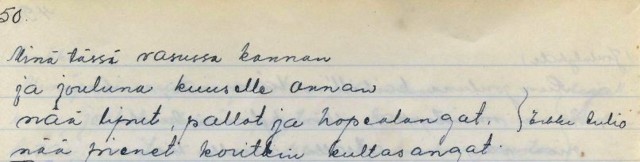 50.
Minä tässä vasussa kannan
ja jouluna kuuselle annan
nää lipuit, pallot ja hopealangat. } Erkki
nää pienet koritkin kultasangat.